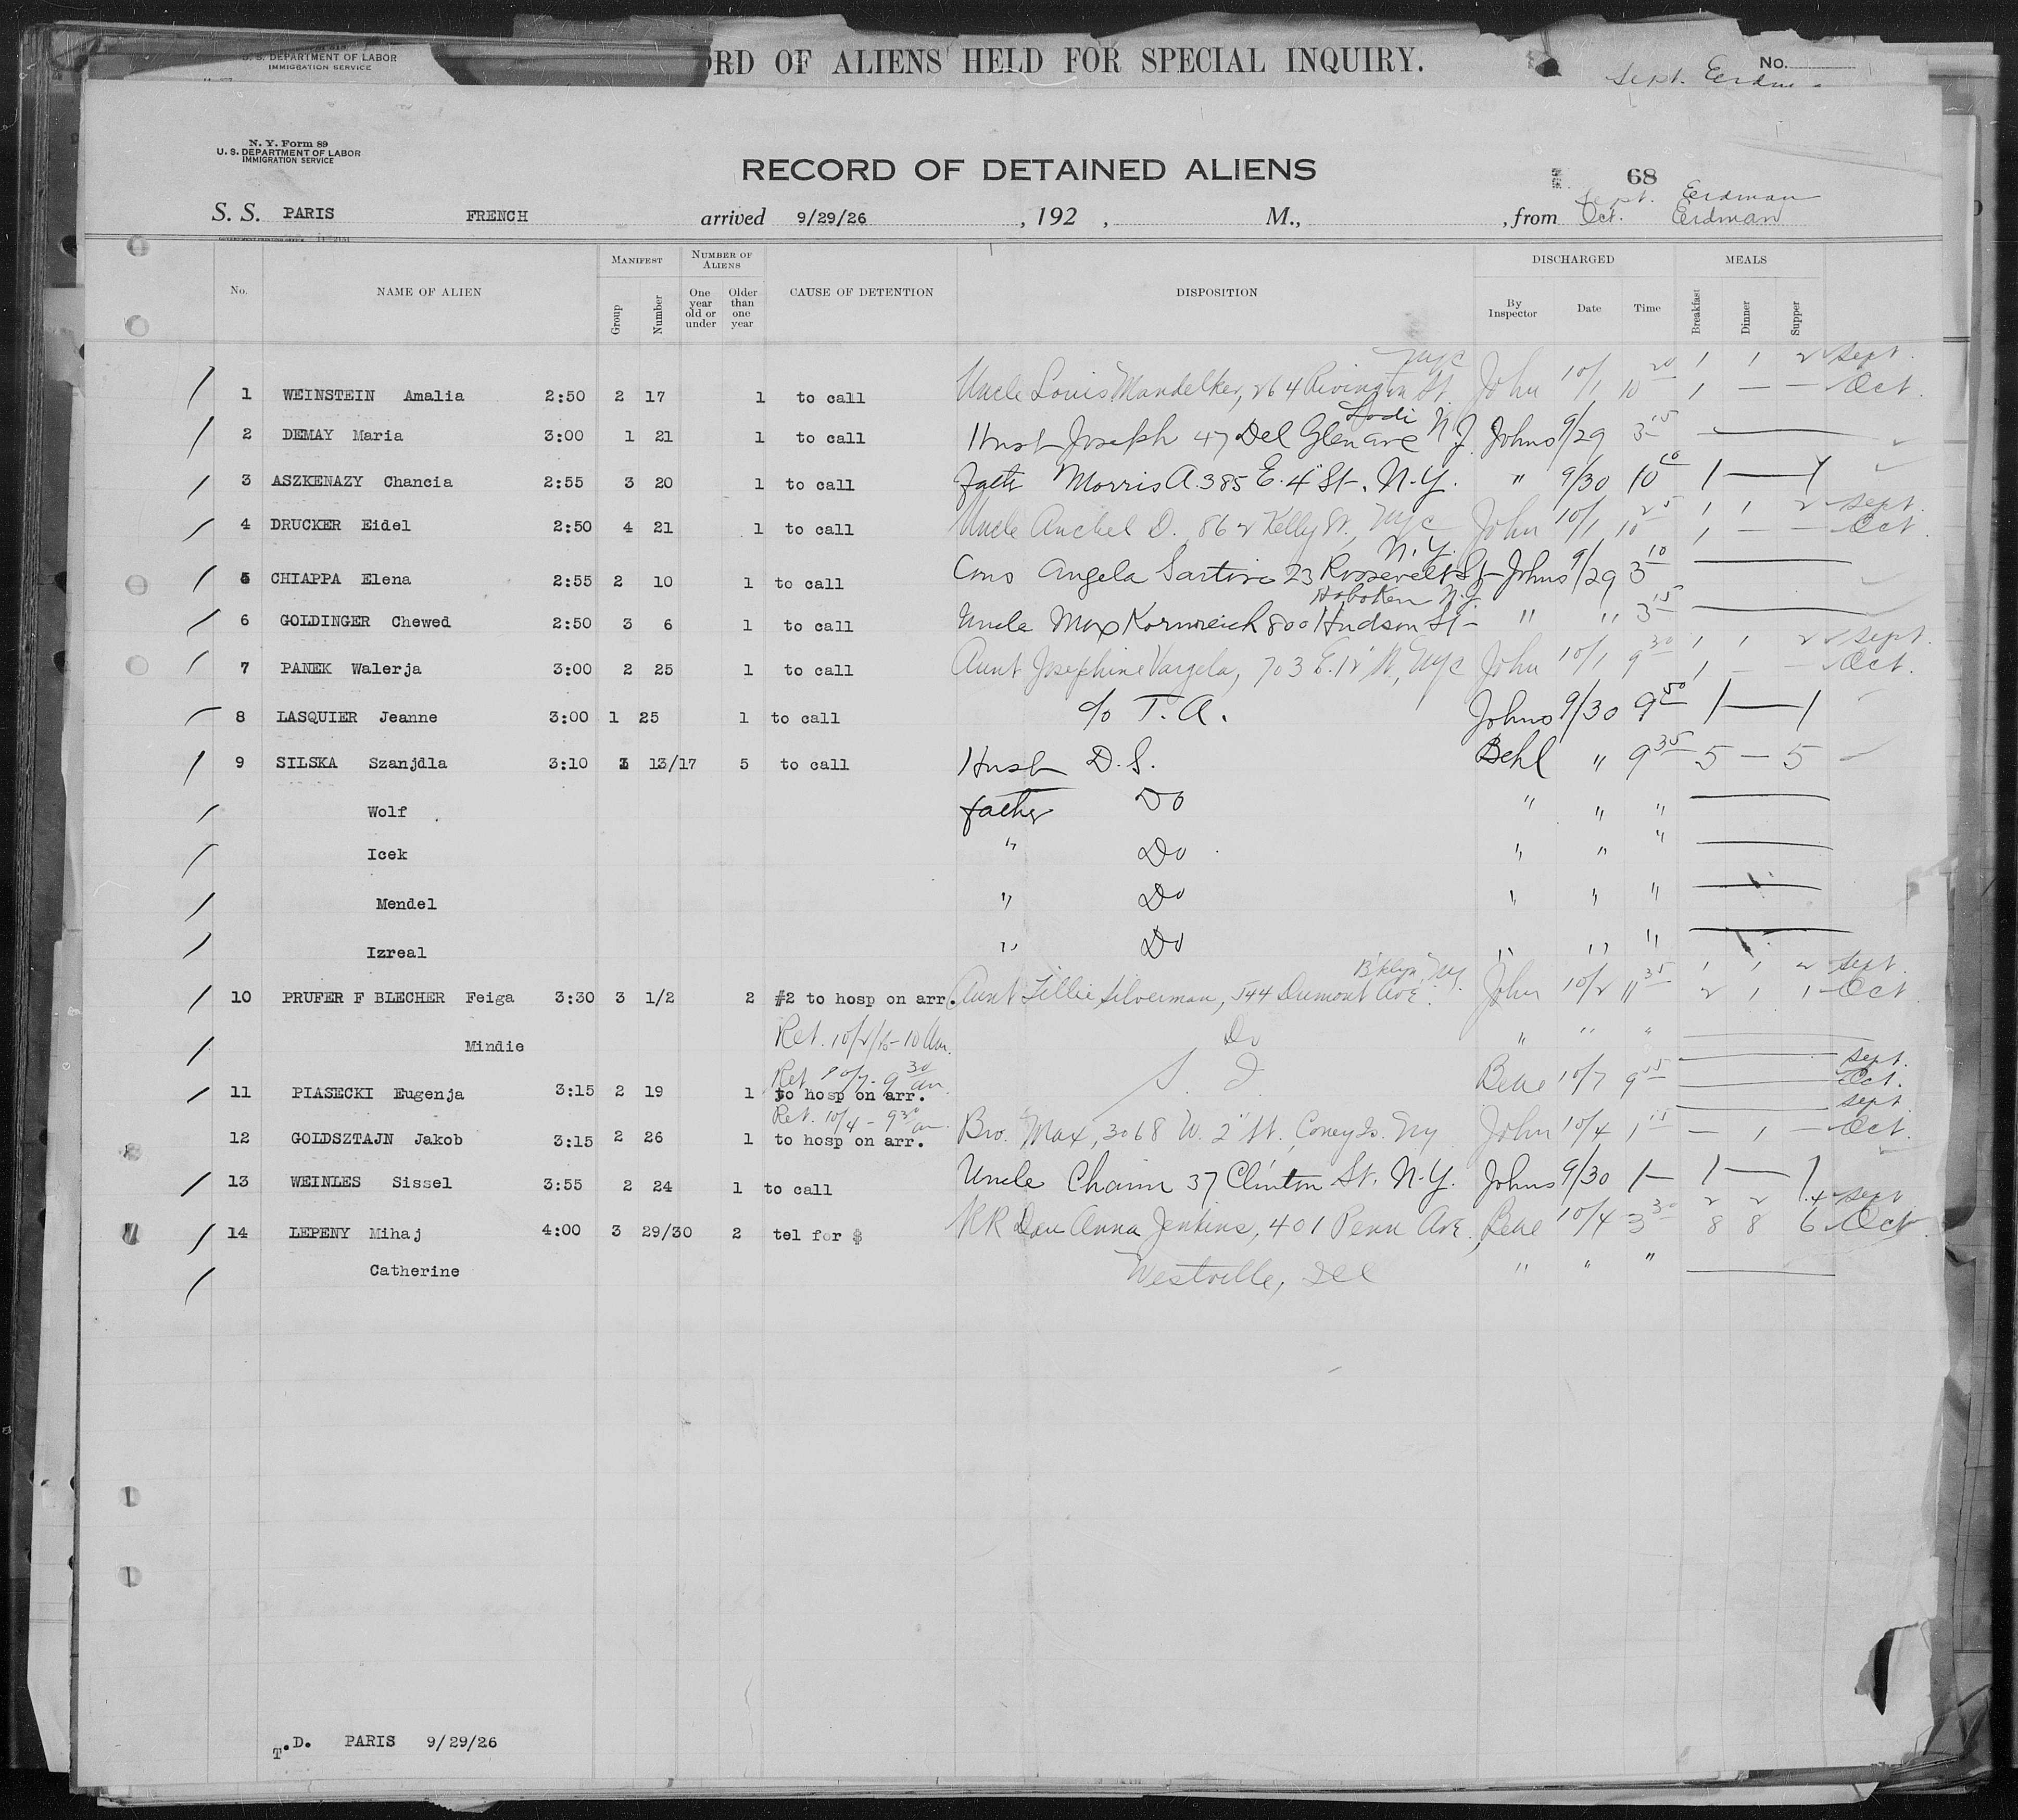 U. S. DEPARTMENT OF LABOR
IMMIGRATION SERVICE
ORD OF ALIENS HELD FOR SPECIAL INQUIRY.
No.
Sept. Erdm
N. Y. Form 89
U. S. DEPARTMENT OF LABOR
IMMIGRATION SERVICE
RECORD OF DETAINED ALIENS
68
Sept. Eerdman
S. S. PARIS FRENCH arrived 9/29/26 , 192 , M., , from Oct. Eerdman
No. NAME OF ALIEN MANIFEST Group Number NUMBER OF ALIENS One year old or under Older than one year CAUSE OF DETENTION DISPOSITION DISCHARGED By Inspector Date Time MEALS Breakfast Dinner Supper
NYC 1 1 2 Sept.
1 WEINSTEIN Amalia 2:50 2 17 1 to call Uncle Louis Mandelker, 264 Rivington St. John 10/1 10 20 1 — — Oct.
Lodi
2 DEMAY Maria 3:00 1 21 1 to call Husb Joseph 47 Del Glen ave N.J. Johns 9/29 3 15
3 ASZKENAZY Chancia 2:55 3 20 1 to call Fath Morris A. 385 E. 4" St. N.Y. " 9/30 10 10 1 — 1
1 1 2 Sept.
4 DRUCKER Eidel 2:50 4 21 1 to call Uncle Anchel D., 862 Kelly St., NYC John 10/1 10 25 1 — — Oct
N.Y.
5 CHIAPPA Elena 2:55 2 10 1 to call Cous Angela Sartori 23 Roosevelt St Johns 9/29 3 10
Hoboken N.J.
6 GOLDINGER Chewed 2:50 3 6 1 to call Uncle Max Kornreich 800 Hudson St " " 3 15
1 1 2 Sept.
7 PANEK Walerja 3:00 2 25 1 to call Aunt Josephine Vargela, 703 E. 12" St., NYC John 10/1 9 30 1 — — Oct.
8 LASQUIER Jeanne 3:00 1 25 1 to call c/o T. A. Johns 9/30 9 50 1 — 1
9 SILSKA Szanjdla 3:10 1 13/17 5 to call Husb D. S. Behl " 9 35 5 — 5
Wolf father Do " " "
Icek " Do " " "
Mendel " Do " " "
Izreal " Do " " "
B'klyn NY. 1 1 2 Sept.
10 PRUFER F BLECHER Feiga 3:30 3 1/2 2 #2 to hosp on arr. Aunt Lillie Silverman, 544 Dumont Ave. John 10/2 11 35 2 1 1 Oct
Mindie Ret. 10/2 - 10 Am. Do " " "
Ret 10/7 - 9 30 am Sept.
11 PIASECKI Eugenja 3:15 2 19 1 to hosp on arr. S. I Behl 10/7 9 55 Oct.
Ret. 10/4 - 9 30 am Sept
12 GOLDSZTAJN Jakob 3:15 2 26 1 to hosp on arr. Bro. Max, 3068 W. 2" St. Coney Is. NY John 10/4 1 15 — 1 — Oct.
13 WEINLES Sissel 3:55 2 24 1 to call Uncle Chaim 37 Clinton St. N.Y. Johns 9/30 1— 1 — 1
2 2 4 Sept
14 LEPENY Mihaj 4:00 3 29/30 2 tel for $ RR Dau Anna Jenkins, 401 Penn Ave., Behl 10/4 3 30 8 8 6 Oct
Catherine Westville, Ill " " "
T.D. PARIS 9/29/26